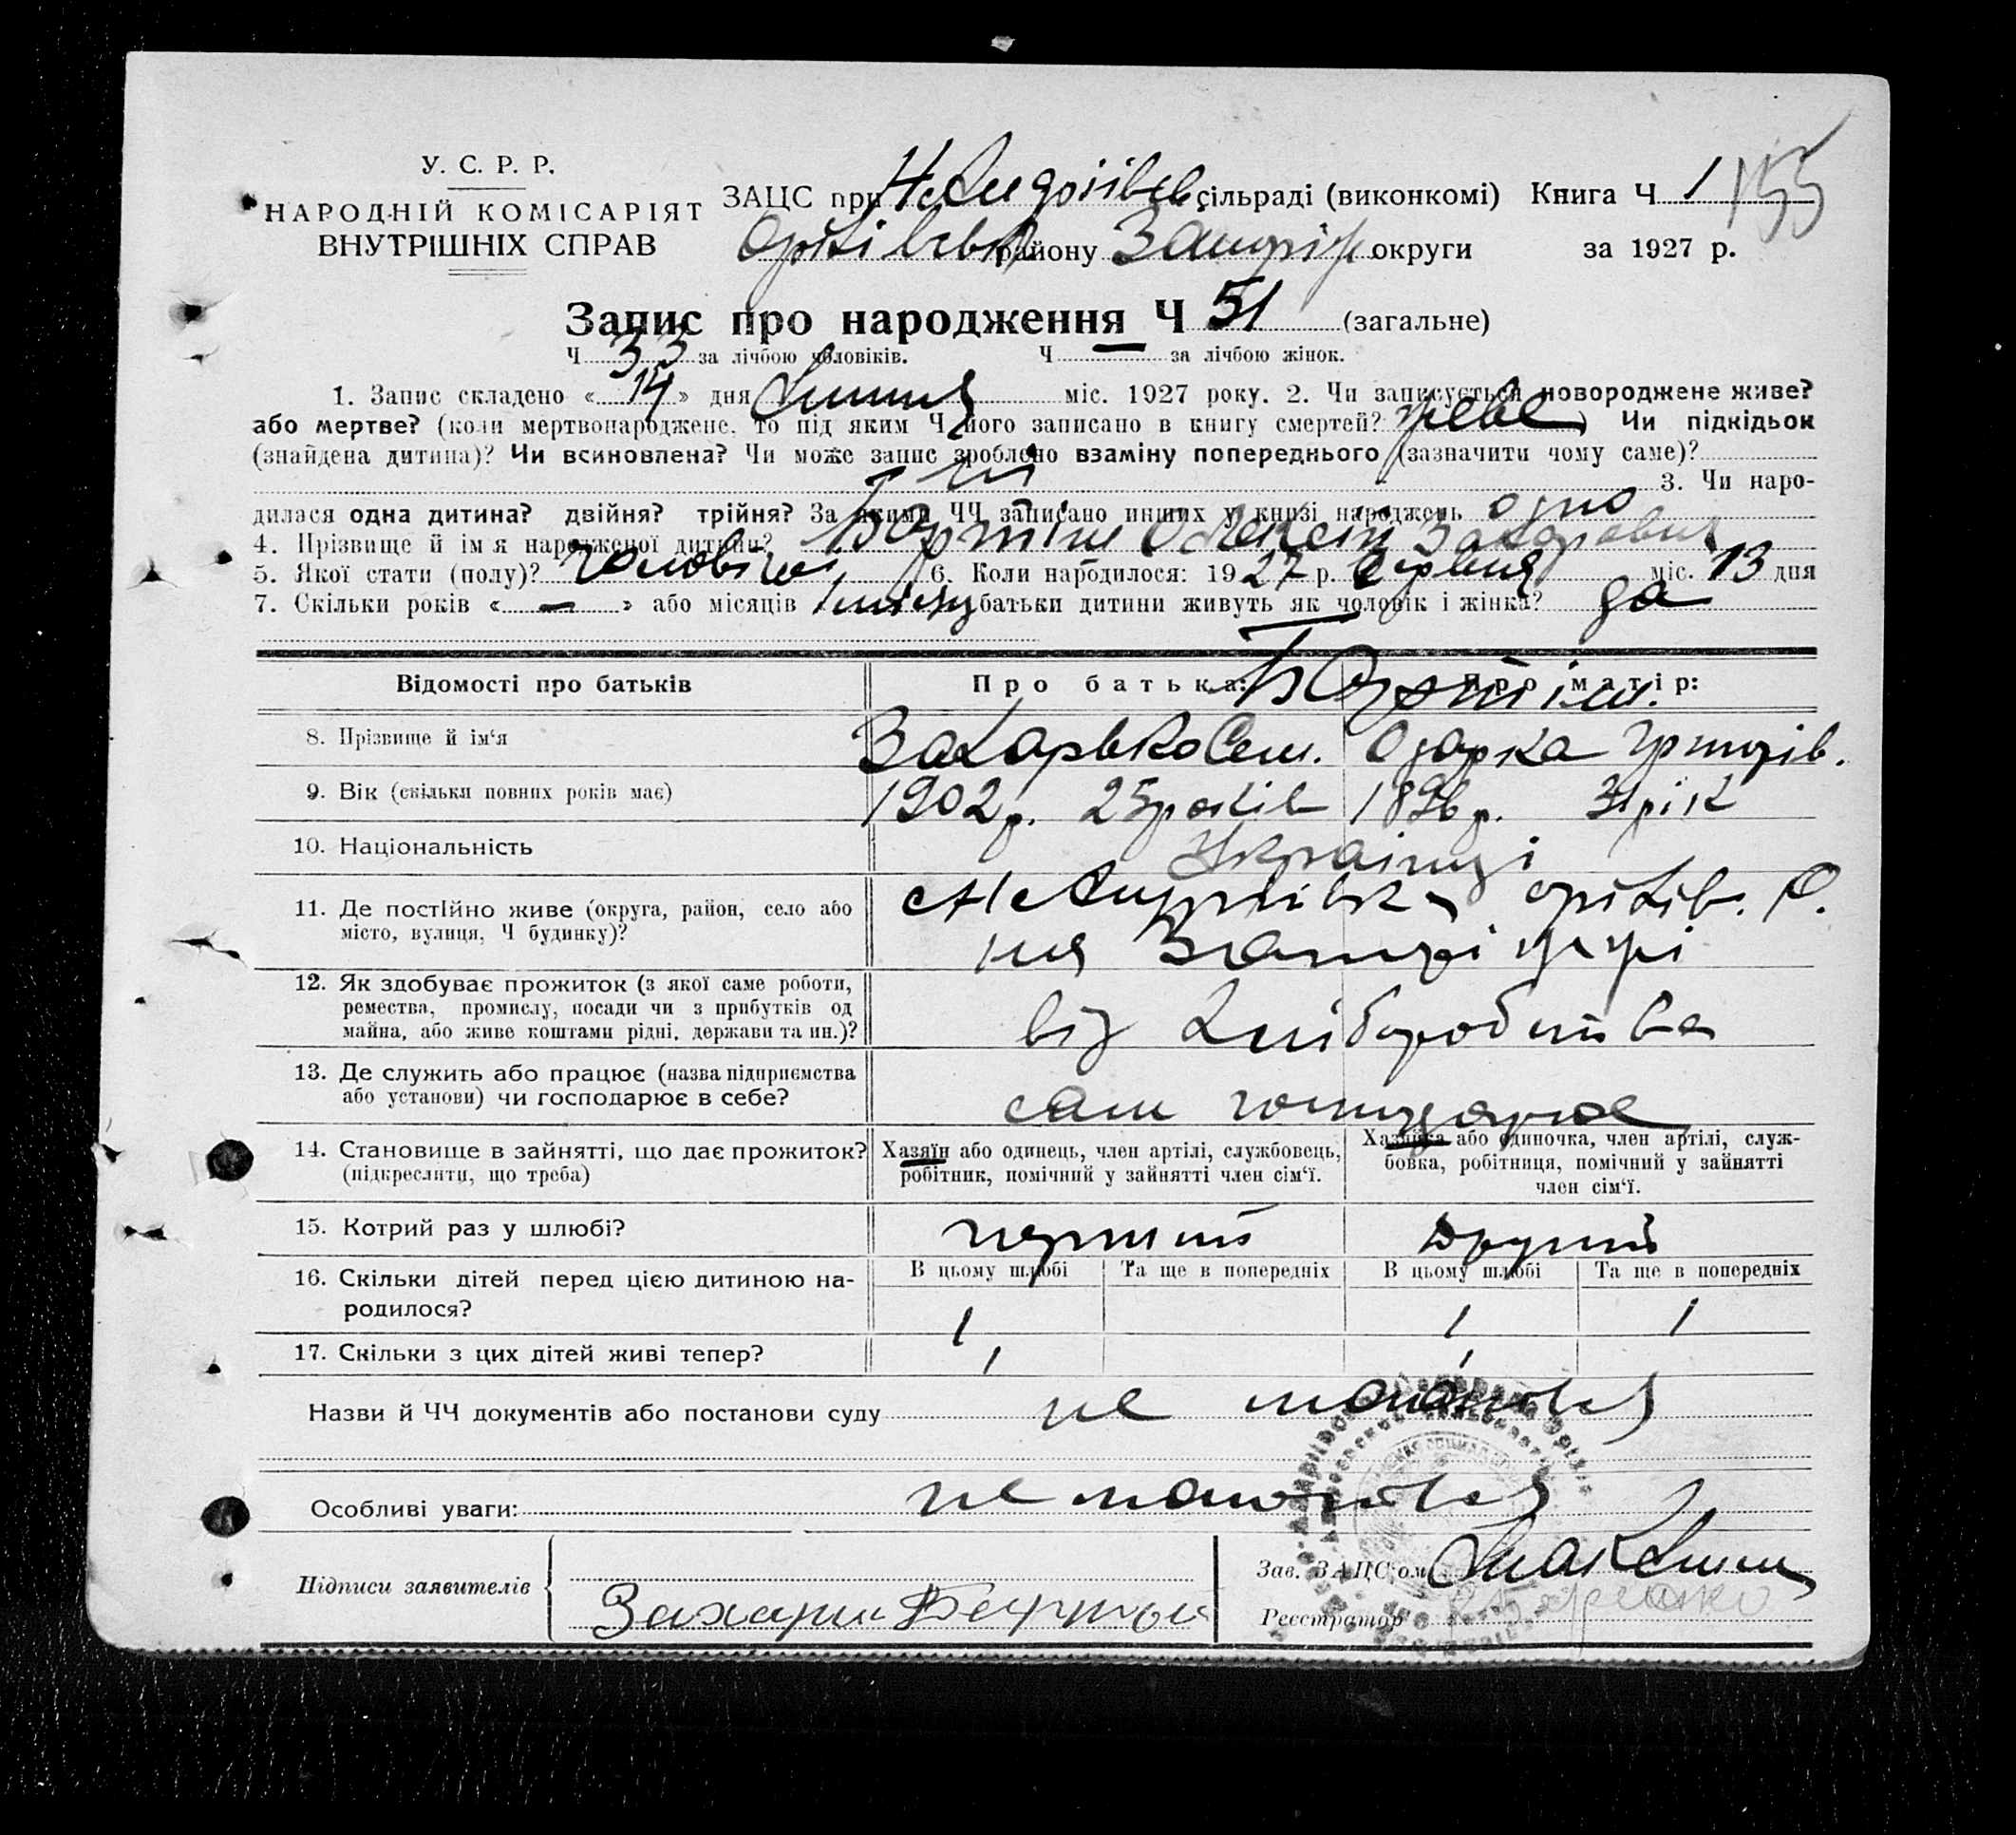 У. С. Р. Р.
НАРОДНІЙ КОМІСАРІЯТ
ВНУТРІШНІХ СПРАВ
ЗАЦС при сільраді (виконкомі) Книга Ч 1 155
району Запоріж округи за 1927 р.
Запис про народження Ч 51 (загальне)
Ч 33 за лічбою чоловіків. Ч — за лічбою жінок.
1. Запис складено « 14 » дня Липня міс. 1927 року. 2. Чи записується новороджене живе?
або мертве? (коли мертвонароджене, то під яким Ч його записано в книгу смертей? живе ) Чи підкідьок
(знайдена дитина)? Чи всиновлена? Чи може запис зроблено взаміну попереднього (зазначити чому саме)?
ні 3. Чи наро-
дилася одна дитина? двійня? трійня? За якими ЧЧ записано инших у книзі народжень одно
4. Прізвище й ім'я народженої дитини? Олексій Захарович
5. Якої стати (полу)? 6. Коли народилося: 1927 р. Червня міс. 13 дня
7. Скільки років « — » або місяців батьки дитини живуть як чоловік і жінка? да
Відомості про батьків Про батька: Про матір:
8. Прізвище й ім'я Захарько Сем. Одарка Григорів.
9. Вік (скільки повних років має) 1902 р. 25 років 1896 р. 31 рік
10. Національність Українці
11. Де постійно живе (округа, район, село або
місто, вулиця, Ч будинку)?
на Запоріжжі
12. Як здобуває прожиток (з якої саме роботи,
ремества, промислу, посади чи з прибутків од
майна, або живе коштами рідні, держави та ин.)? від хліборобства
13. Де служить або працює (назва підприємства
або установи) чи господарює в себе? сам господарює
14. Становище в зайнятті, що дає прожиток?
(підкреслити, що треба)
Хазяїн або одинець, член артілі, службовець,
робітник, помічний у зайнятті член сім'ї.
Хазяйка або одиночка, член артілі, служ-
бовка, робітниця, помічний у зайнятті
член сім'ї.
15. Котрий раз у шлюбі? перший другий
16. Скільки дітей перед цією дитиною на-
родилося?
В цьому шлюбі Та ще в попередніх В цьому шлюбі Та ще в попередніх
1 1 1
17. Скільки з цих дітей живі тепер? 1 1
Назви й ЧЧ документів або постанови суду не
Особливі уваги: не
Підписи заявителів Захарий
Зав. ЗАЦС'ом
Реєстратор